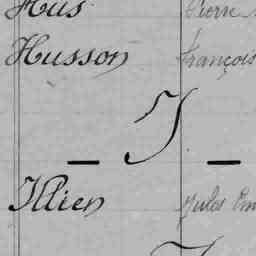 Hus Pierre
Husson François
— I —
Illien Jules Em